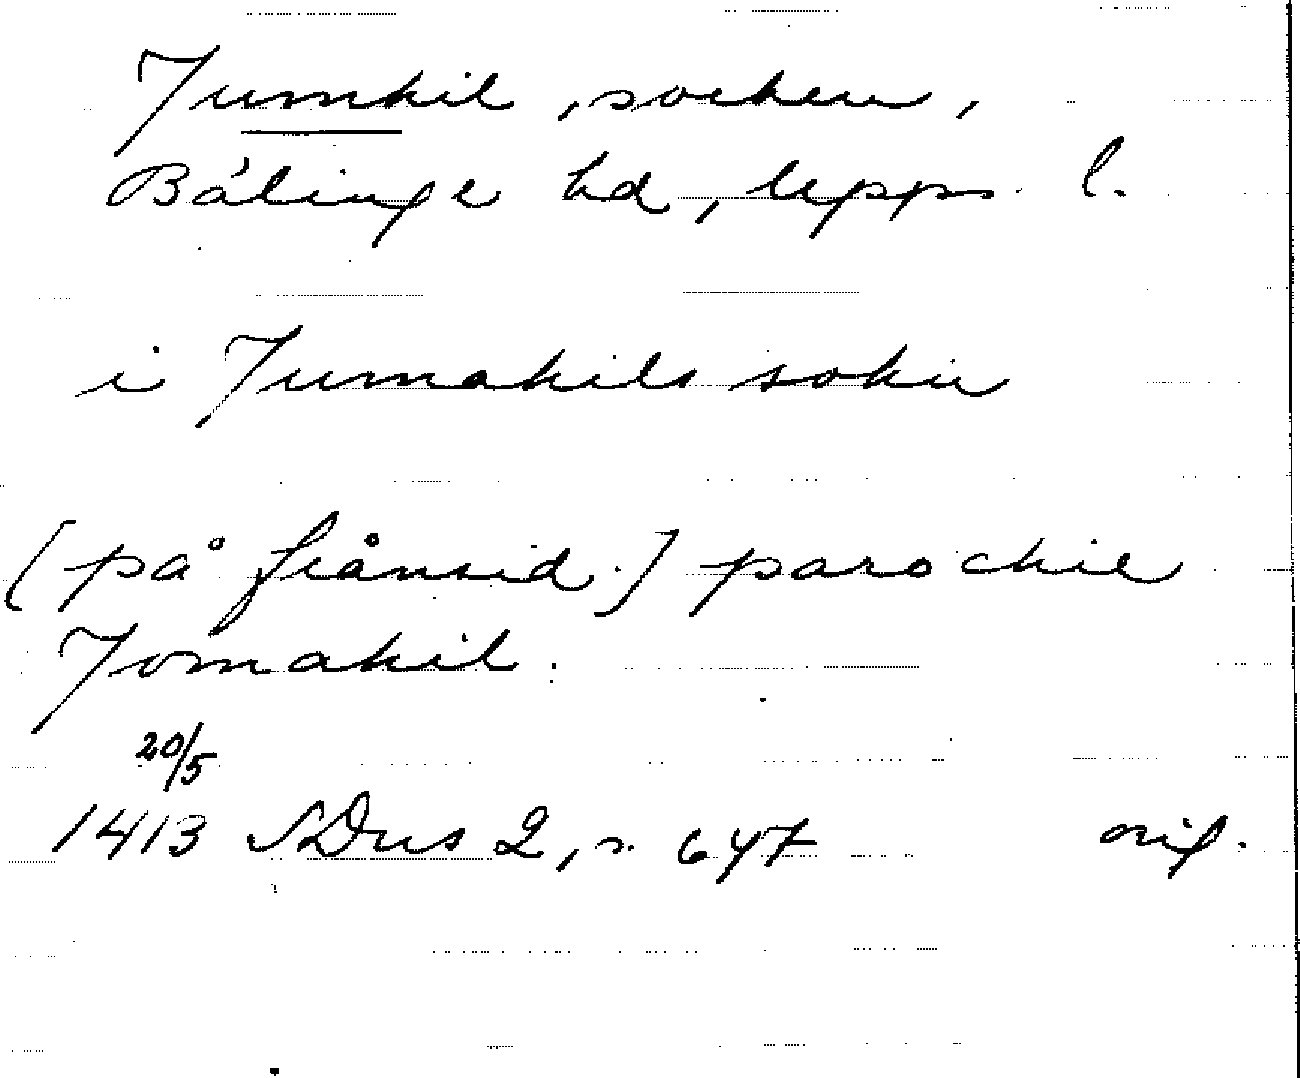 Jumkil, socken,
Bälinge hd, Upps. l.
i Jumakils sokn
[på frånsid.] parochie
Jomakil.
20/5
1413 SDns 2, s. 647 orig.